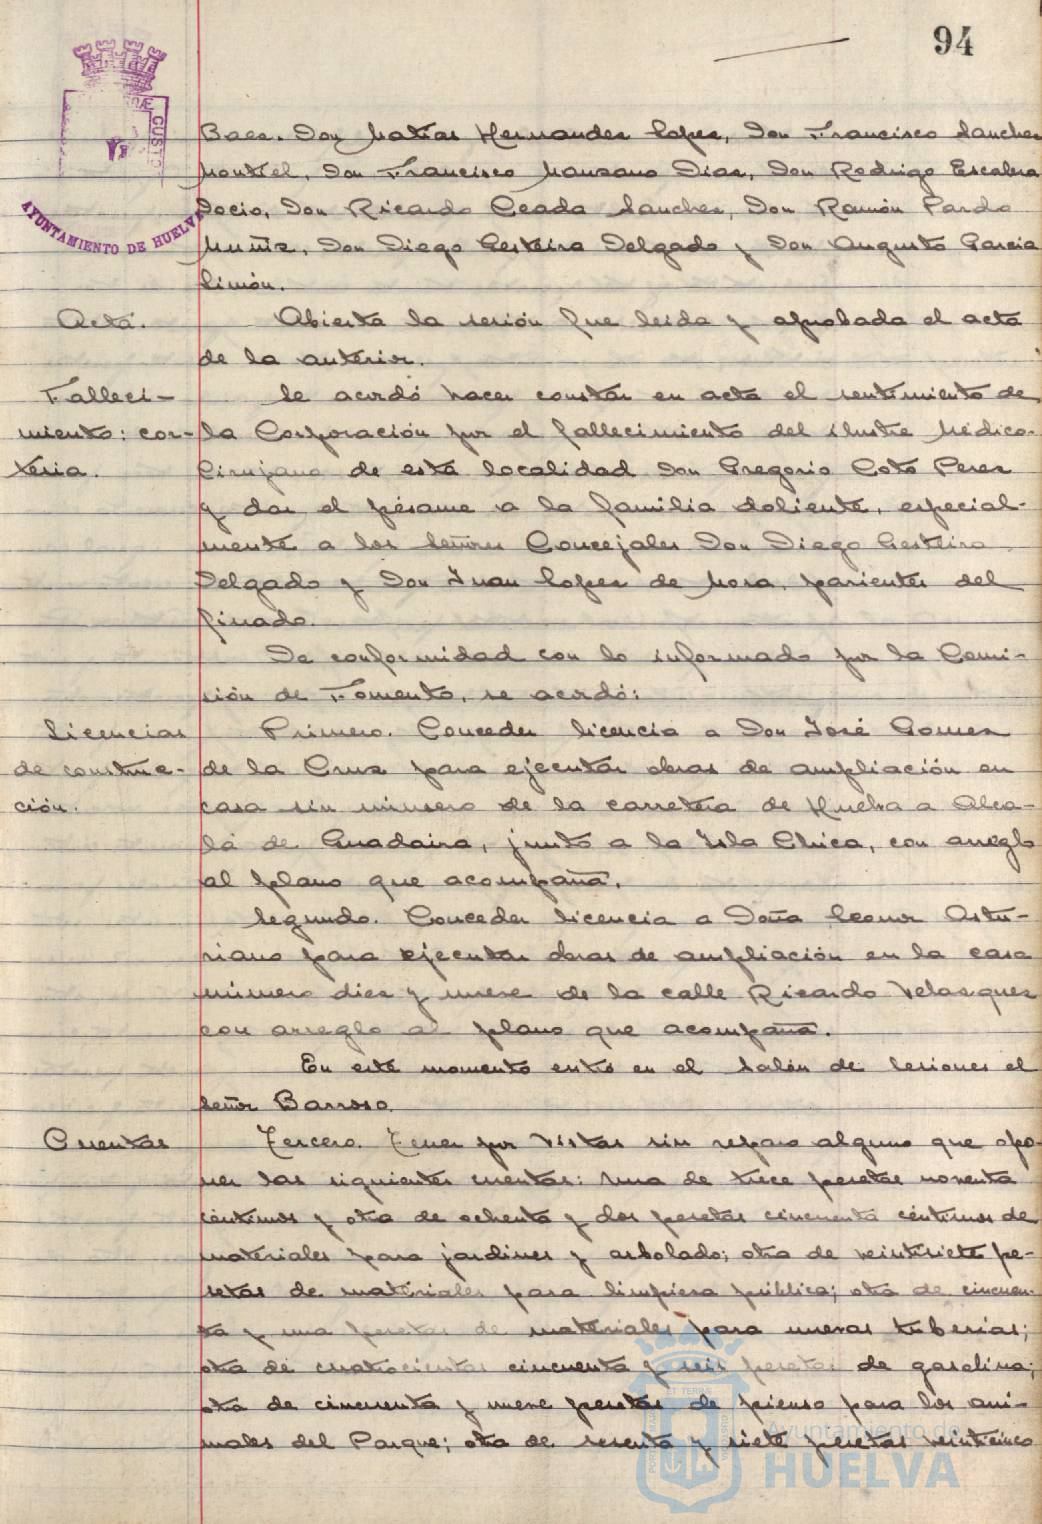 94
AYUNTAMIENTO DE HUELVA
Baez. Don Matias Hernandez Lopez, Don Francisco Sanchez
Montiel, Don Francisco Manzano Diaz, Don Rodrigo Escalera
Docio, Don Ricardo Ceada Sanchez, Don Ramón Pardo
Muñiz, Don Diego Gesteira Delgado y Don Augusto Garcia
Limón.
Acta.
Abierta la sesión fue leida y aprobada el acta
de la anterior.
Falleci-
miento: cor-
teria.
Se acordó hacer constar en acta el sentimiento de
la Corporación por el fallecimiento del ilustre Médico-
Cirujano de esta localidad Don Gregorio Coto Perez
y dar el pésame a la familia doliente, especial-
mente a los Señores Concejales Don Diego Gesteira
Delgado y Don Juan Lopez de Mora, parientes del
finado.
De conformidad con lo informado por la Comi-
sión de Fomento, se acordó:
Licencias
de construc-
ción.
Primero. Conceder licencia a Don José Gomez
de la Cruz para ejecutar obras de ampliación en
casa sin número de la carretera de Huelva a Alca-
lá de Guadaira, junto a la Isla Chica, con arreglo
al plano que acompaña.
Segundo. Conceder licencia a Doña Leonor Astu-
riano para ejecutar obras de ampliación en la casa
número diez y nueve de la calle Ricardo Velazquez
con arreglo al plano que acompaña.
En este momento entró en el Salón de Sesiones el
Señor Barroso.
Cuentas
Tercero. Tener por vistas sin reparo alguno que opo-
ner las siguientes cuentas: una de trece pesetas noventa
céntimos y otra de ochenta y dos pesetas cincuenta céntimos de
materiales para jardines y arbolado; otra de veintisiete pe-
setas de materiales para limpieza pública; otra de cincuen-
ta y una pesetas de materiales para nuevas tuberias;
otra de cuatrocientas cincuenta y seis pesetas de gasolina;
otra de cincuenta y nueve pesetas de pienso para los ani-
males del Parque; otra de sesenta y siete pesetas veinticinco
Ayuntamiento de
HUELVA